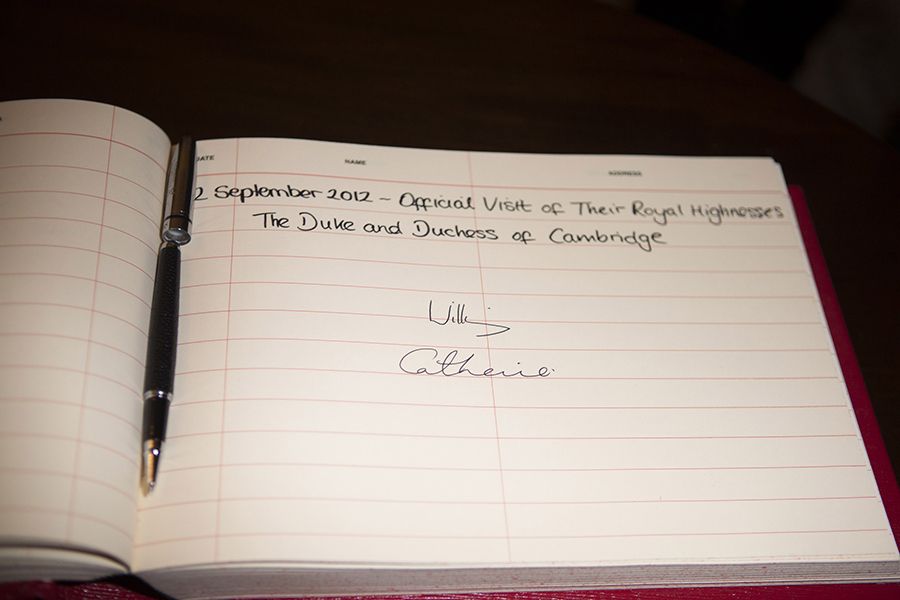 DATE NAME ADDRESS
2 September 2012 - Official Visit of Their Royal Highnesses
The Duke and Duchess of Cambridge
Catherine